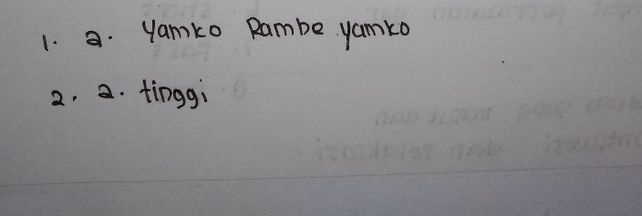 1. a. Yamko Rambe yamko
2. a. tinggi